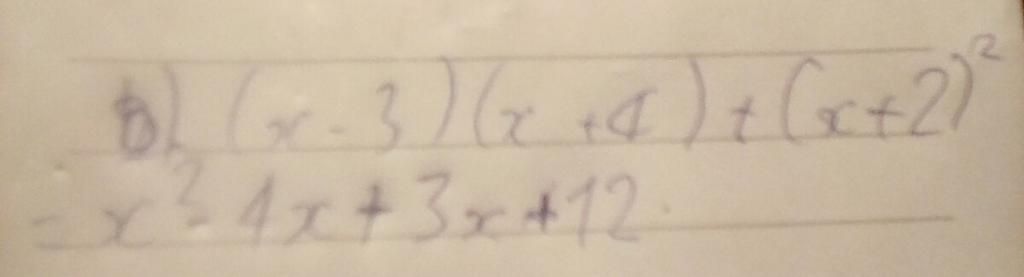 b) (x-3)(x+4)+(x+2)²
= x²- 4x+3x+12